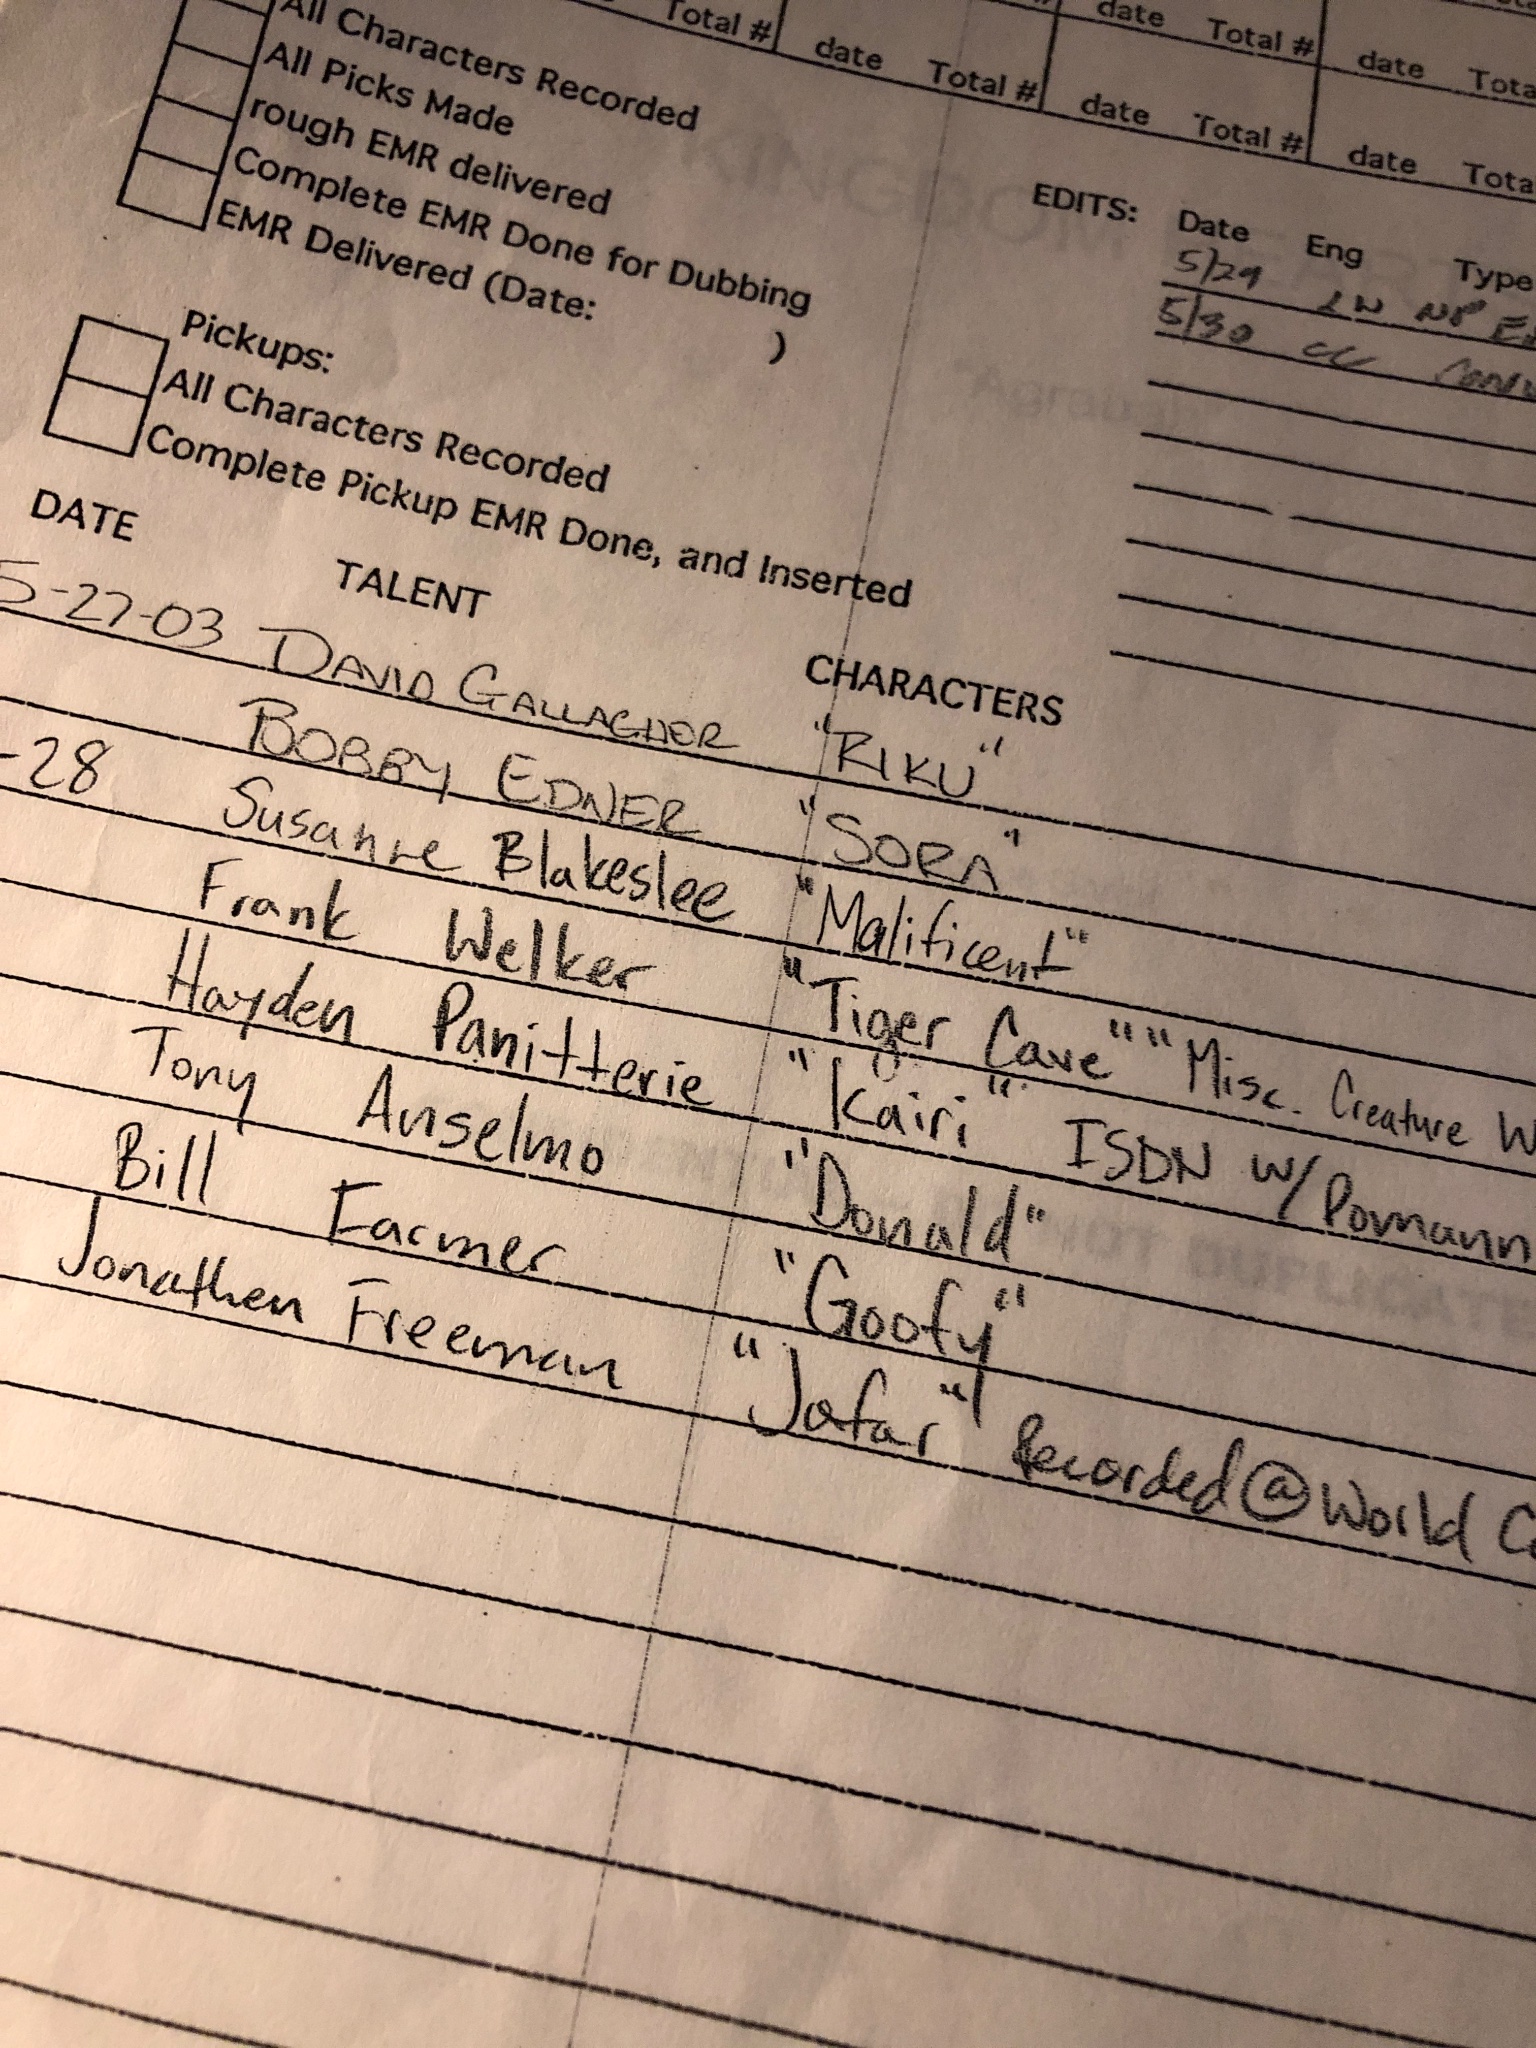 Total # date Total # date Total # date
date Total # date Total #
All Characters Recorded
All Picks Made
rough EMR delivered
Complete EMR Done for Dubbing
EMR Delivered (Date: )
EDITS: Date Eng Type
5/29 LW NP
5/30 CC
Pickups:
All Characters Recorded
Complete Pickup EMR Done, and Inserted
DATE TALENT CHARACTERS
5-27-03 DAVID GALLAGHER "RIKU"
BOBBY EDNER "SORA"
-28 Susanne Blakeslee "Malificent"
Frank Welker "Tiger Cave" "Misc. Creature W
Hayden Panitterie "Kairi" ISDN w/ Pomann
Tony Anselmo "Donald"
Bill Farmer "Goofy"
Jonathen Freeman "Jafar" Recorded @ World